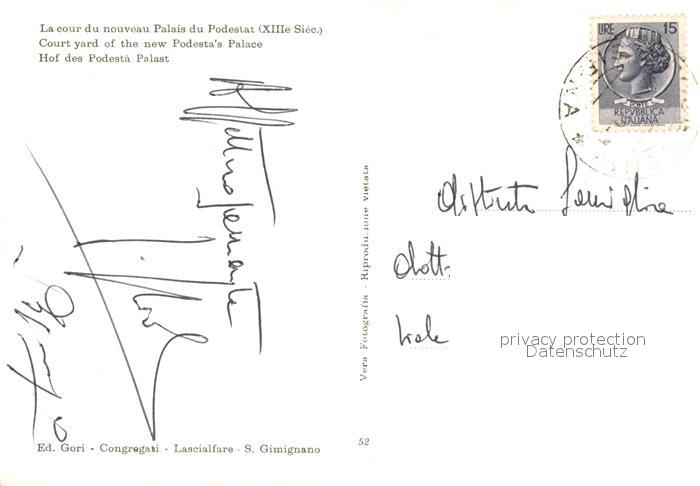 La cour du nouveau Palais du Podestat (XIIIe Siéc.)
Court yard of the new Podesta's Palace
Hof des Podestà Palast
LIRE 15
POSTE
REPVBBLICA
ITALIANA
Affettuosamente
Distinta Famiglia
Dott.
Viale
privacy protection
Datenschutz
Vera Fotografia - Riproduzione vietata
Ed. Gori - Congregati - Lascialfare - S. Gimignano
52